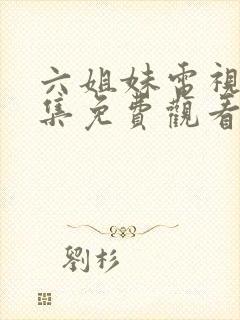 六姐妹電視
集免費觀看
劉杉